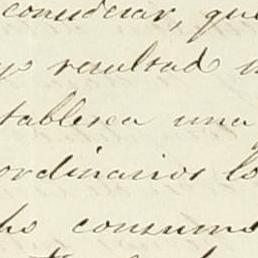 considerar, que
yo resultad
tablesca una
ordinarios lo
ho consumo